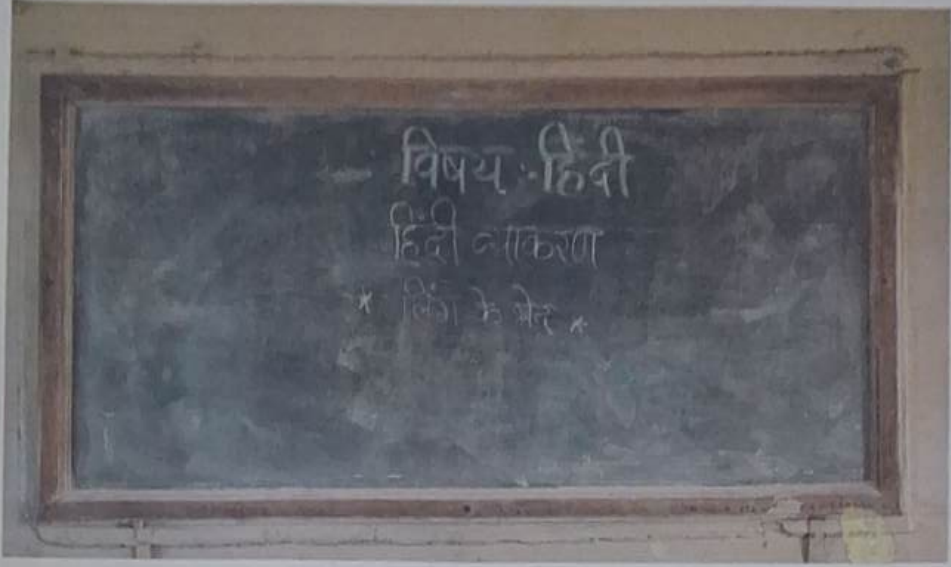 विषय :- हिंदी
हिंदी व्याकरण
* लिंग के भेद *